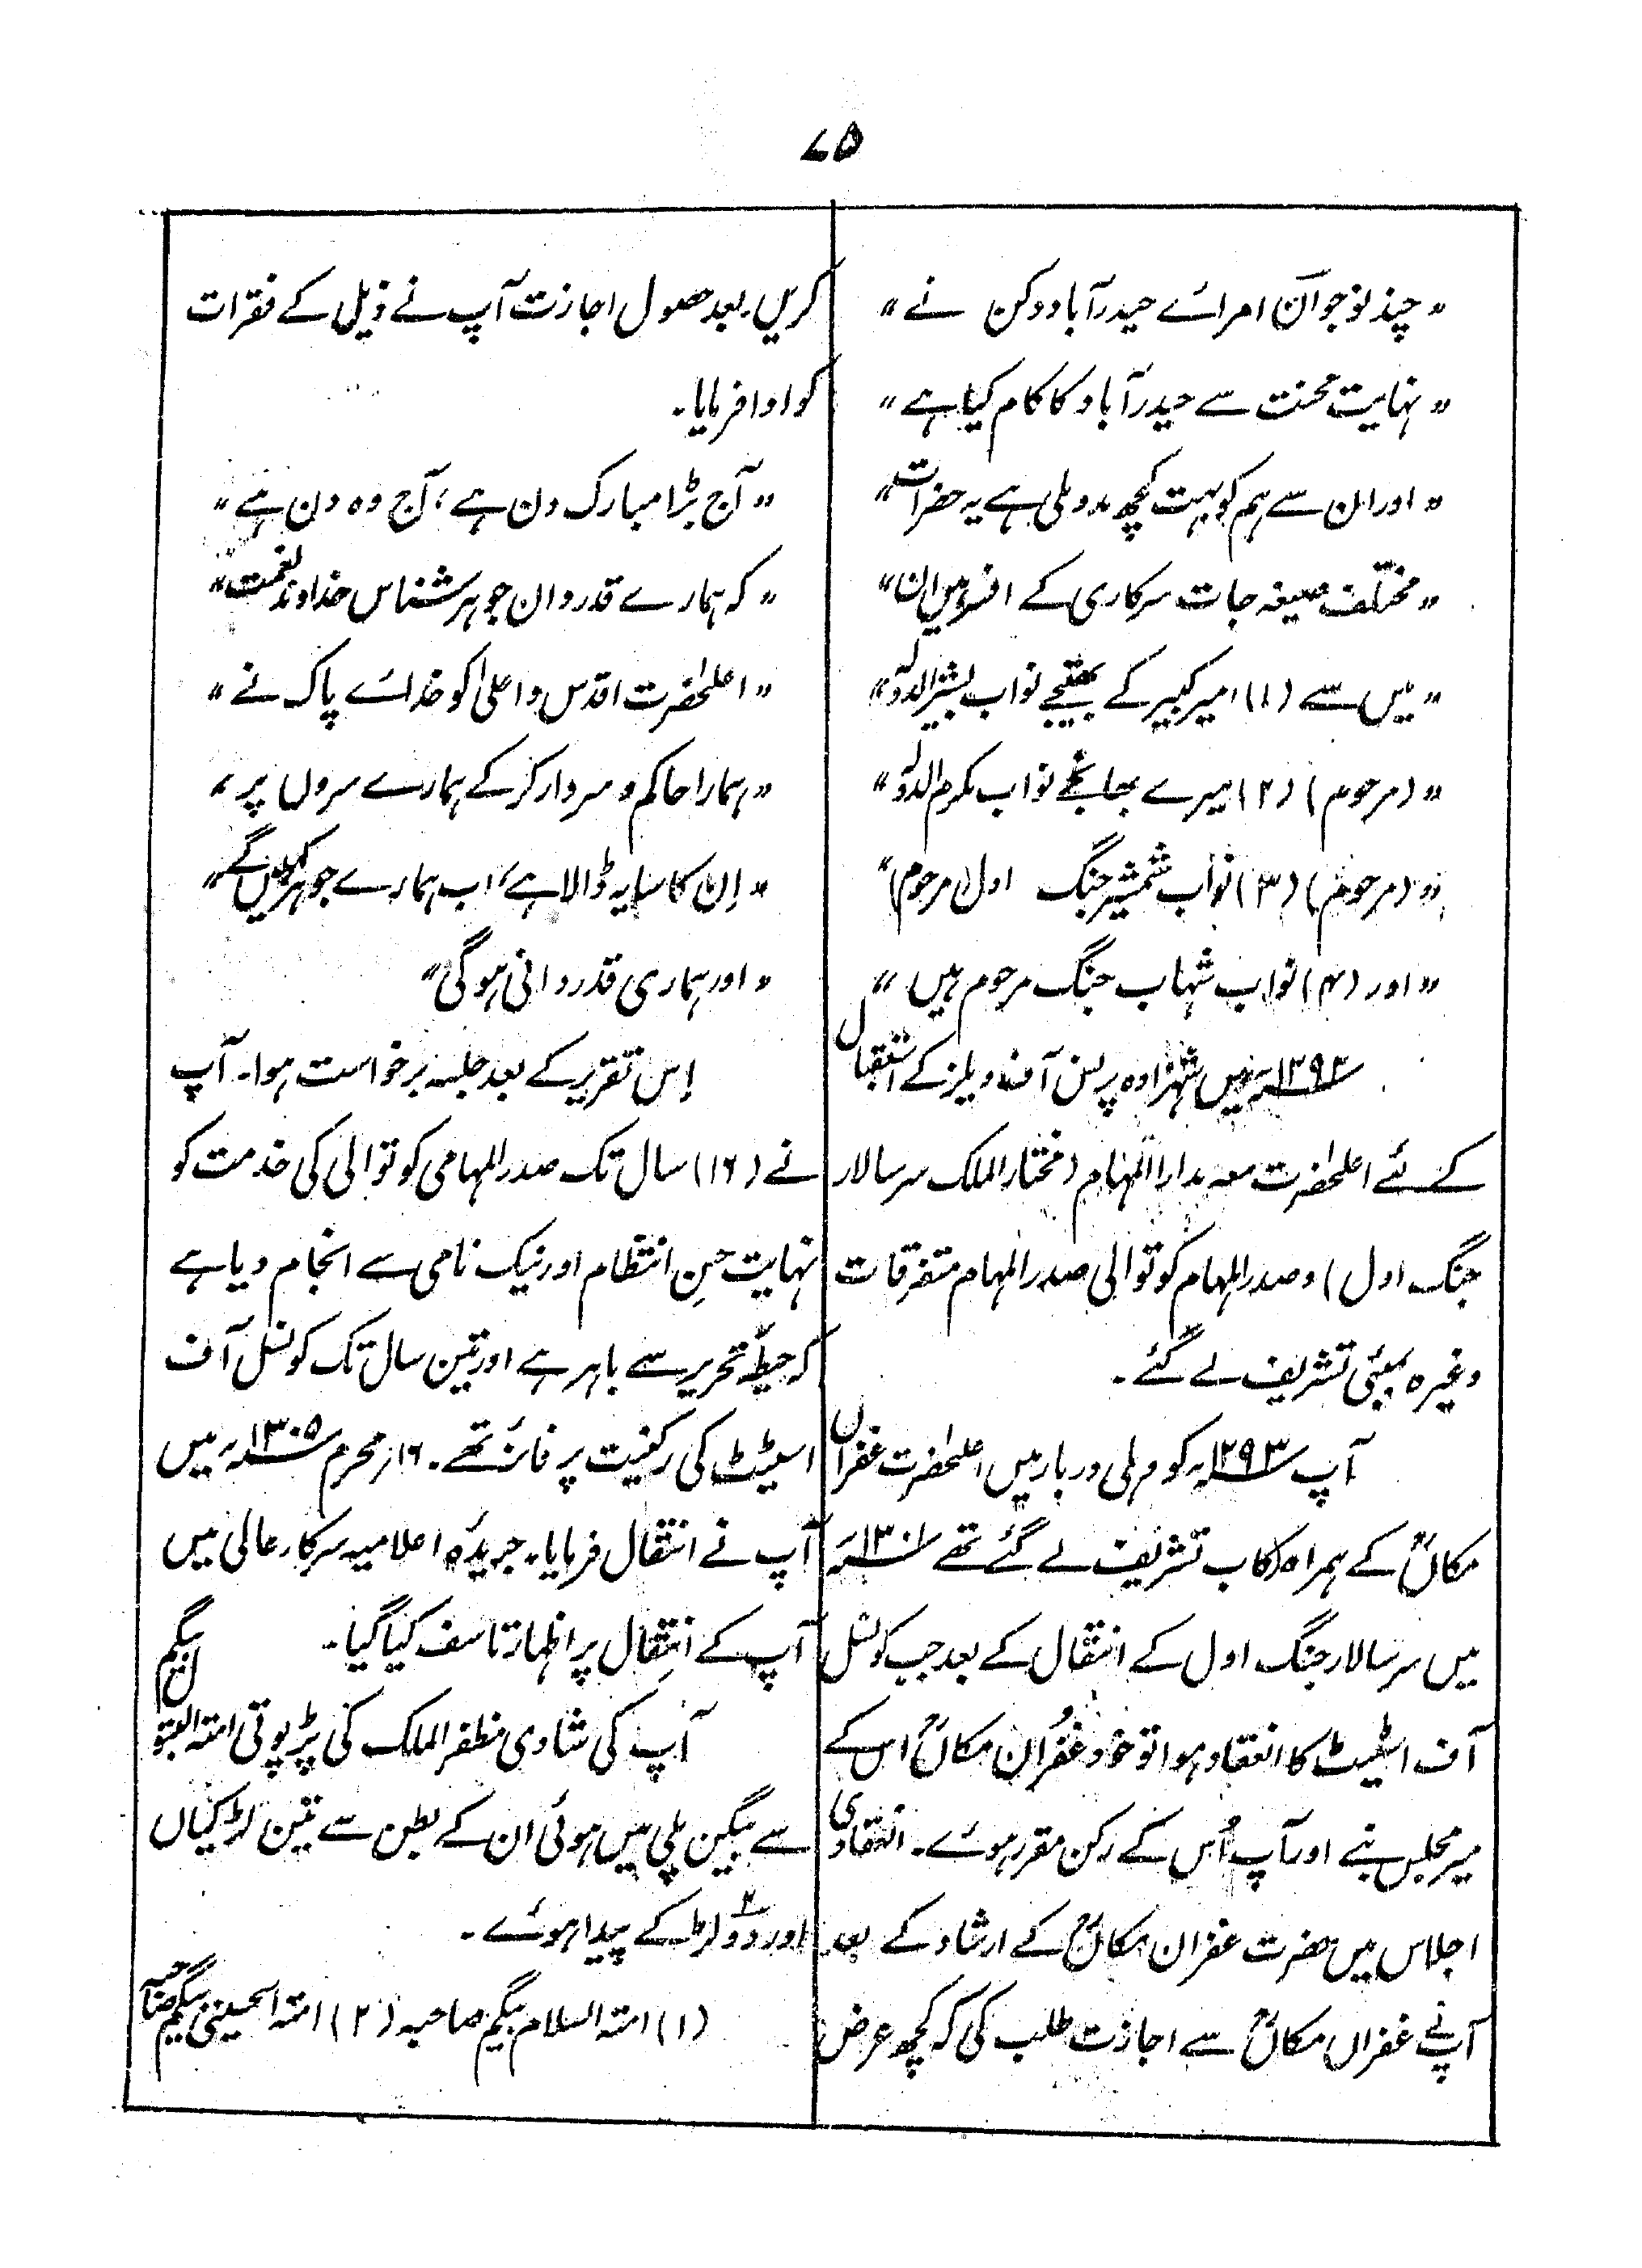 ۷۵
"چند نوجوان امرائے حیدرآباد دکن نے"
"نہایت محنت سے حیدرآباد کا کام کیا ہے"
"اور ان سے ہم کو بہت کچھ مدد ملی ہے یہ حضرات"
"مختلف صیغہ جات سرکاری کے افسر ہیں ان"
"میں سے (۱) امیر کبیر کے بھتیجے نواب بشیر الدولہ"
"(مرحوم) (۲) میرے بھانجے نواب مکرم الدولہ"
"(مرحوم) (۳) نواب شمشیر جنگ اول (مرحوم)"
"اور (۴) نواب شہاب جنگ مرحوم ہیں"
۱۲۹۳ھ میں شہزادہ پرنس آف ویلز کے استقبال
کے لئے اعلحٰضرت معہ مدار المہام (مختار الملک سر سالار
جنگ اول) و صدر المہام کوتوالی صدر المہام متفرقات
وغیرہ بمبئی تشریف لے گئے۔
آپ ۱۲۹۳ھ کو دہلی دربار میں اعلحٰضرت غفراں
مکانؒ کے ہمراہ رکاب تشریف لے گئے تھے ۱۳۰۱ھ
میں سر سالار جنگ اول کے انتقال کے بعد جب کونسل
آف اسٹیٹ کا انعقاد ہوا تو خود غفران مکانؒ اس کے
میر مجلس بنے اور آپ اُس کے رکن مقرر ہوئے۔ انعقادی
اجلاس میں حضرت غفران مکانؒ کے ارشاد کے بعد
آپنے غفراں مکانؒ سے اجازت طلب کی کہ کچھ عرض
کریں بعد حصول اجازت آپ نے ذیل کے فقرات
کو ادا فرمایا۔
"آج بڑا مبارک دن ہے، آج وہ دن ہے"
"کہ ہمارے قدردان جوہر شناس خداوند نعمت"
"اعلحٰضرت اقدس و اعلیٰ کو خدائے پاک نے"
"ہمارا حاکم و سردار کرکے ہمارے سروں پر"
"اِن کا سایہ ڈالا ہے، اب ہمارے جوہر کھلیں گے"
"اور ہماری قدردانی ہوگی"
اِس تقریر کے بعد جلسہ برخواست ہوا۔ آپ
نے (۱۶) سال تک صدر المہامی کوتوالی کی خدمت کو
نہایت حسنِ انتظام اور نیک نامی سے انجام دیا ہے
کہ حیطۂ تحریر سے باہر ہے اور تین سال تک کونسل آف
اسٹیٹ کی رکنیت پر فائز تھے۔ ۱۶؍ محرم ۱۳۰۵ھ میں
آپ نے انتقال فرمایا۔ جریدۂ اعلامیہ سرکار عالی میں
آپ کے انتقال پر اظہار تاسف کیا گیا۔
آپ کی شادی مظفر الملک کی پڑپوتی امتہ البتول بیگم
سے بیگن پلی میں ہوئی ان کے بطن سے تین لڑکیاں
اور دو ۲ لڑکے پیدا ہوئے۔
(۱) امتہ السلام بیگم صاحبہ (۲) امتہ الحسینی بیگم صاحبہ